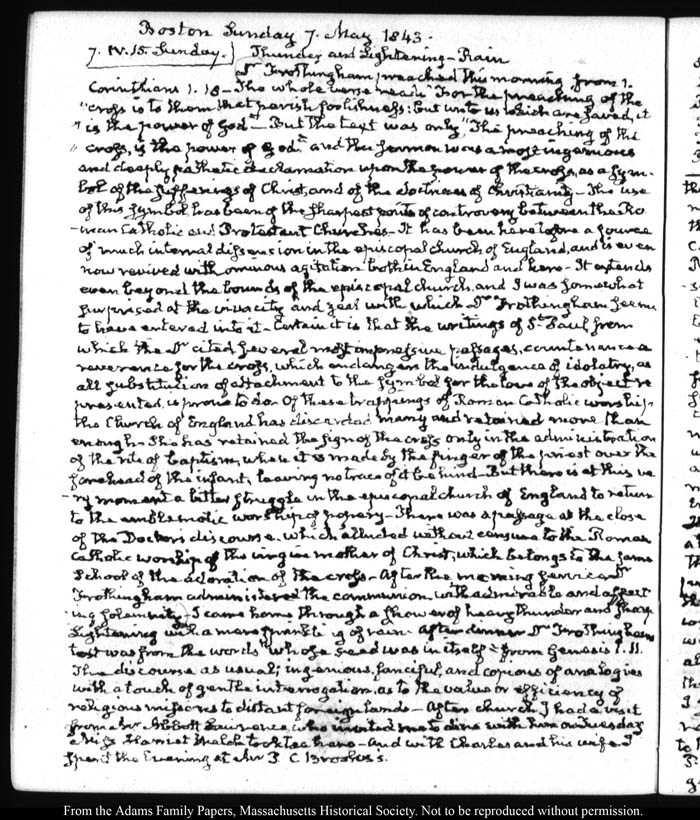 Boston Sunday 7. May 1843.
7. IV. 15. Sunday. } Thunder and Lightening - Rain
Dr Frothingham preached this morning from 1.
Corinthians 1. 18 - The whole verse reads "For the preaching of the
"cross is to them that perish foolishness: but unto us which are saved, it
"is the power of God" - But the text was only "The preaching of the
"cross, is the power of God." and the sermon was a most ingenious
and deeply pathetic declamation upon the power of the cross, as a sym-
bol of the sufferings of Christ, and of the doctrines of Christianity - The use
of this symbol has been of the sharpest points of controversy between the Ro-
-man Catholic and Protestant Churches - It has been heretofore a source
of much internal dissension in the episcopal church of England, and is even
now revived with ominous agitation both in England and here - It extends
even beyond the bounds of the episcopal church, and I was somewhat
surprised at the vivacity and zeal with which Dr Frothingham seems
to have entered into it - Certain it is that the writings of St Paul from
which the Dr cited several most impressive passages, countenance a
reverence for the cross, which endangers the indulgence of idolatry, as
all substitution of attachment to the symbol for the love of the object re
presented, is prone to do. Of these trappings of Roman Catholic worship
the Church of England has discarded many and retained more than
enough - She has retained the sign of the cross only in the administration
of the rite of baptism, where it is made by the finger of the priest over the
forehead of the infant, leaving no trace of it behind - But there is at this ve
-ry moment a bitter struggle in the episcopal church of England to return
to the emblematic worship of popery - There was a passage at the close
of the Doctors discourse, which alluded without censure to the Roman
Catholic worship of the virgin mother of Christ, which belongs to the same
School of the adoration of the cross - After the morning service Dr
Frothingham administered the communion with admirable and affect
-ing solemnity. I came home through a shower of heavy thunder and sharp
Lightening with a mere sprinkling of rain. After dinner Dr Frothinghams
text was from the words "whose seed was in itself" from Genesis 1. 11.
The discourse as usual; ingenious, fanciful, and copious of analogies
with a touch of gentle interrogation, as to the value or efficiency of
religious missions to distant foreign lands - After church I had a visit
from Mr Abbott Lawrence, who invited me to dine with him on Tuesday
Miss Harriet Welsh took tea here - and with Charles and his wife I
spent the Evening at Mr P. C. Brooks's.
From the Adams Family Papers, Massachusetts Historical Society. Not to be reproduced without permission.